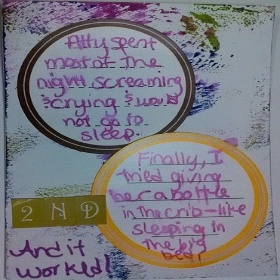 Ally spent
most of the
night screaming
& crying & would
not go to
sleep.
Finally, I
tried giving
her a bottle
in the crib - like
sleeping in
the big
bed!
2 N D
And it
worked!